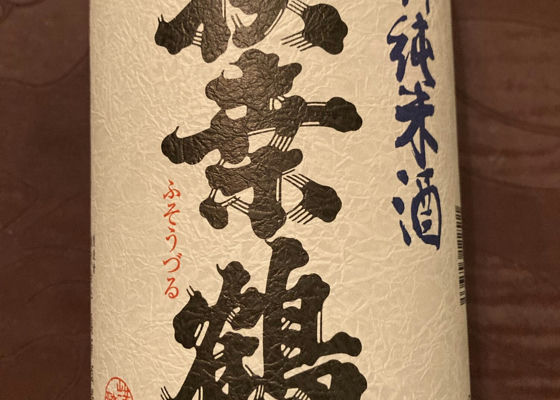 純米酒
扶桑鶴
ふそうづる